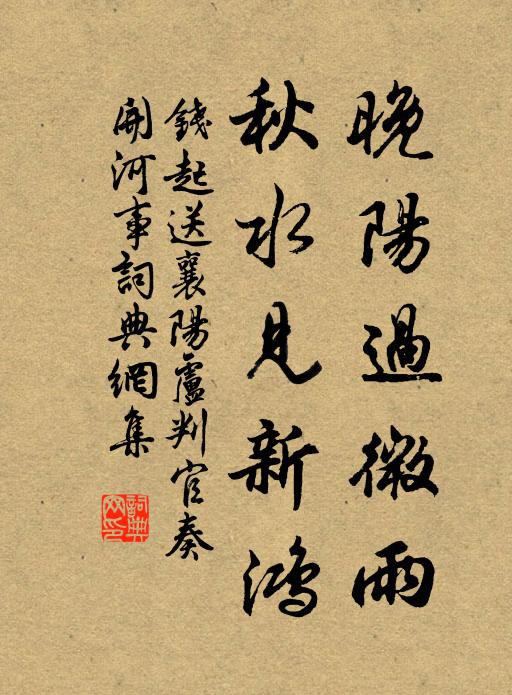 晚陽過微雨
秋水見新鴻
錢起送襄陽盧判官奏
開河事詞典網集
詞典
網印